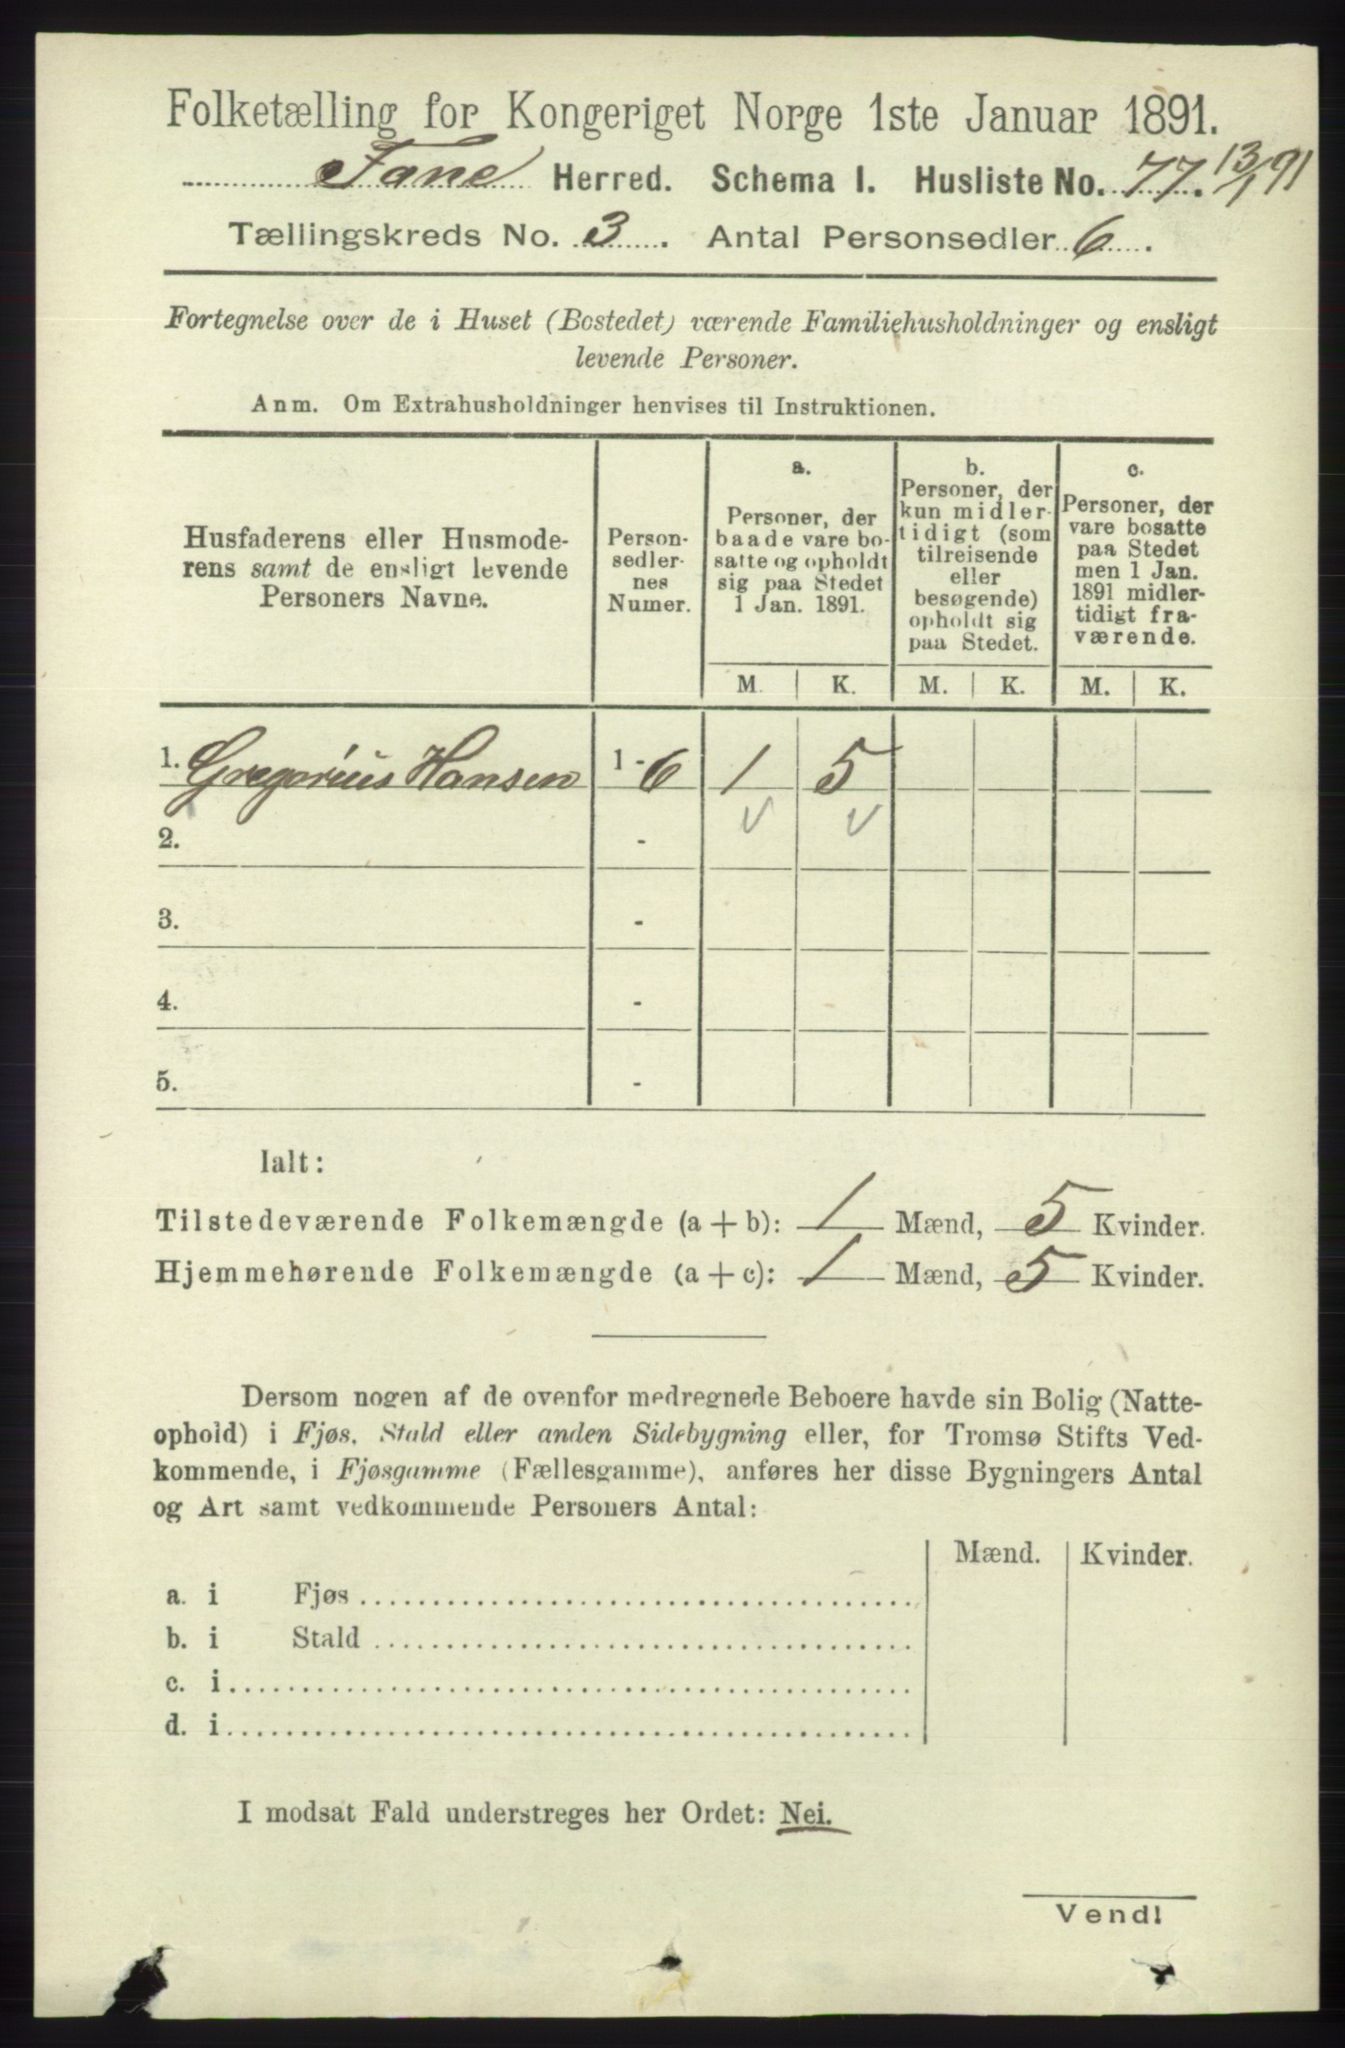 Folketælling for Kongeriget Norge 1ste Januar 1891.
Fane Herred. Schema I. Husliste No. 77. 13/1 91
Tællingskreds No. 3. Antal Personsedler 6.
Fortegnelse over de i Huset (Bostedet) værende Familiehusholdninger og ensligt
levende Personer.
Anm. Om Extrahusholdninger henvises til Instruktionen.
Husfaderens eller Husmode-
rens samt de ensligt levende
Personers Navne.
Person-
sedler-
nes
Numer.
a.
Personer, der
baade vare bo-
satte og opholdt
sig paa Stedet
1 Jan. 1891.
b.
Personer, der
kun midler-
tidigt (som
tilreisende
eller
besøgende)
opholdt sig
paa Stedet.
c.
Personer, der
vare bosatte
paa Stedet
men 1 Jan.
1891 midler-
tidigt fra-
værende.
M. K. M. K. M. K.
1. Gregorius Hansen 1 - 6 1 5
2. -
3. -
4. -
5. -
Ialt:
Tilstedeværende Folkemængde (a + b): 1 Mænd, 5 Kvinder.
Hjemmehørende Folkemængde (a + c): 1 Mænd, 5 Kvinder.
Dersom nogen af de ovenfor medregnede Beboere havde sin Bolig (Natte-
ophold) i Fjøs, Stald eller anden Sidebygning eller, for Tromsø Stifts Ved-
kommende, i Fjøsgamme (Fællesgamme), anføres her disse Bygningers Antal
og Art samt vedkommende Personers Antal:
Mænd. Kvinder.
a. i Fjøs
b. i Stald
c. i
d. i
I modsat Fald understreges her Ordet: Nei.
Vend!